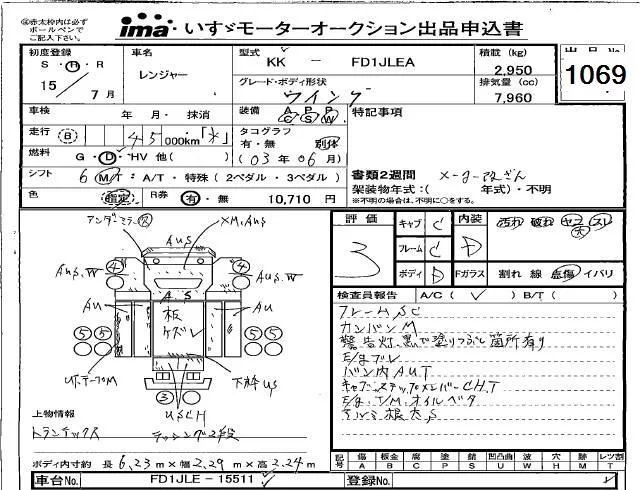 ㊟赤太枠内は必ず
ボールペンで
ご記入下さい。
ima いすゞモーターオークション出品申込書
初度登録 車名 型式 積載 (kg) 出品No.
S・H・R レンジャー KK － FD1JLEA 2,950 1069
15 7月 グレード・ボディ形状 排気量 (cc)
ウイング 7,960
車検 年 月・ 抹消 装備 AC PS PW 特記事項
走行 B 45 000km「不」 タコグラフ
有・無 別体
燃料 G・D・HV 他( ) (03年06月)
シフト 6 M/T：A/T・特殊(2ペダル・3ペダル) 書類2週間 メーター改ざん
架装物年式：( 年式)・不明
※不明の場合は、不明に○をする。
色 指定 R券 有・無 10,710 円
評価 3 キャブ C 内装 汚れ 破れ ヤニ スレ
フレーム C D 大
ボディ D Fガラス 割れ 線 点傷 イバリ
検査員報告 A/C ( ✓ ) B/T ( )
フレームSC
カンバンM
警告灯、黒で塗りつぶし箇所有り
E/gブレ
バン内AUT
キャブ、ステップ、メンバーCHT
E/g、T/M、オイルベタ
アンダーミラー欠 XM,AUS
AUS
AUS.W ④ ④ AUS.W
A.S
AU AU
板
ケズレ
⑤⑤ ⑤⑤
下枠US
③
USCH
上物情報
トランテックス ラッシング2段
ボディ内寸約 長6.23m×幅2.29m×高2.24m
記号 傷 板金 腐 塗 錆 凹凸曲 波 穴 跡 レツ割
A B C P S U W H M T
車台No. FD1JLE－15511 登録No.